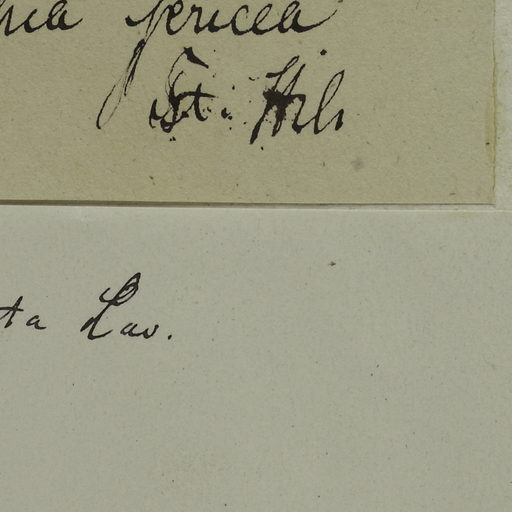 nia sericea
St. Hil.
ta Lav.